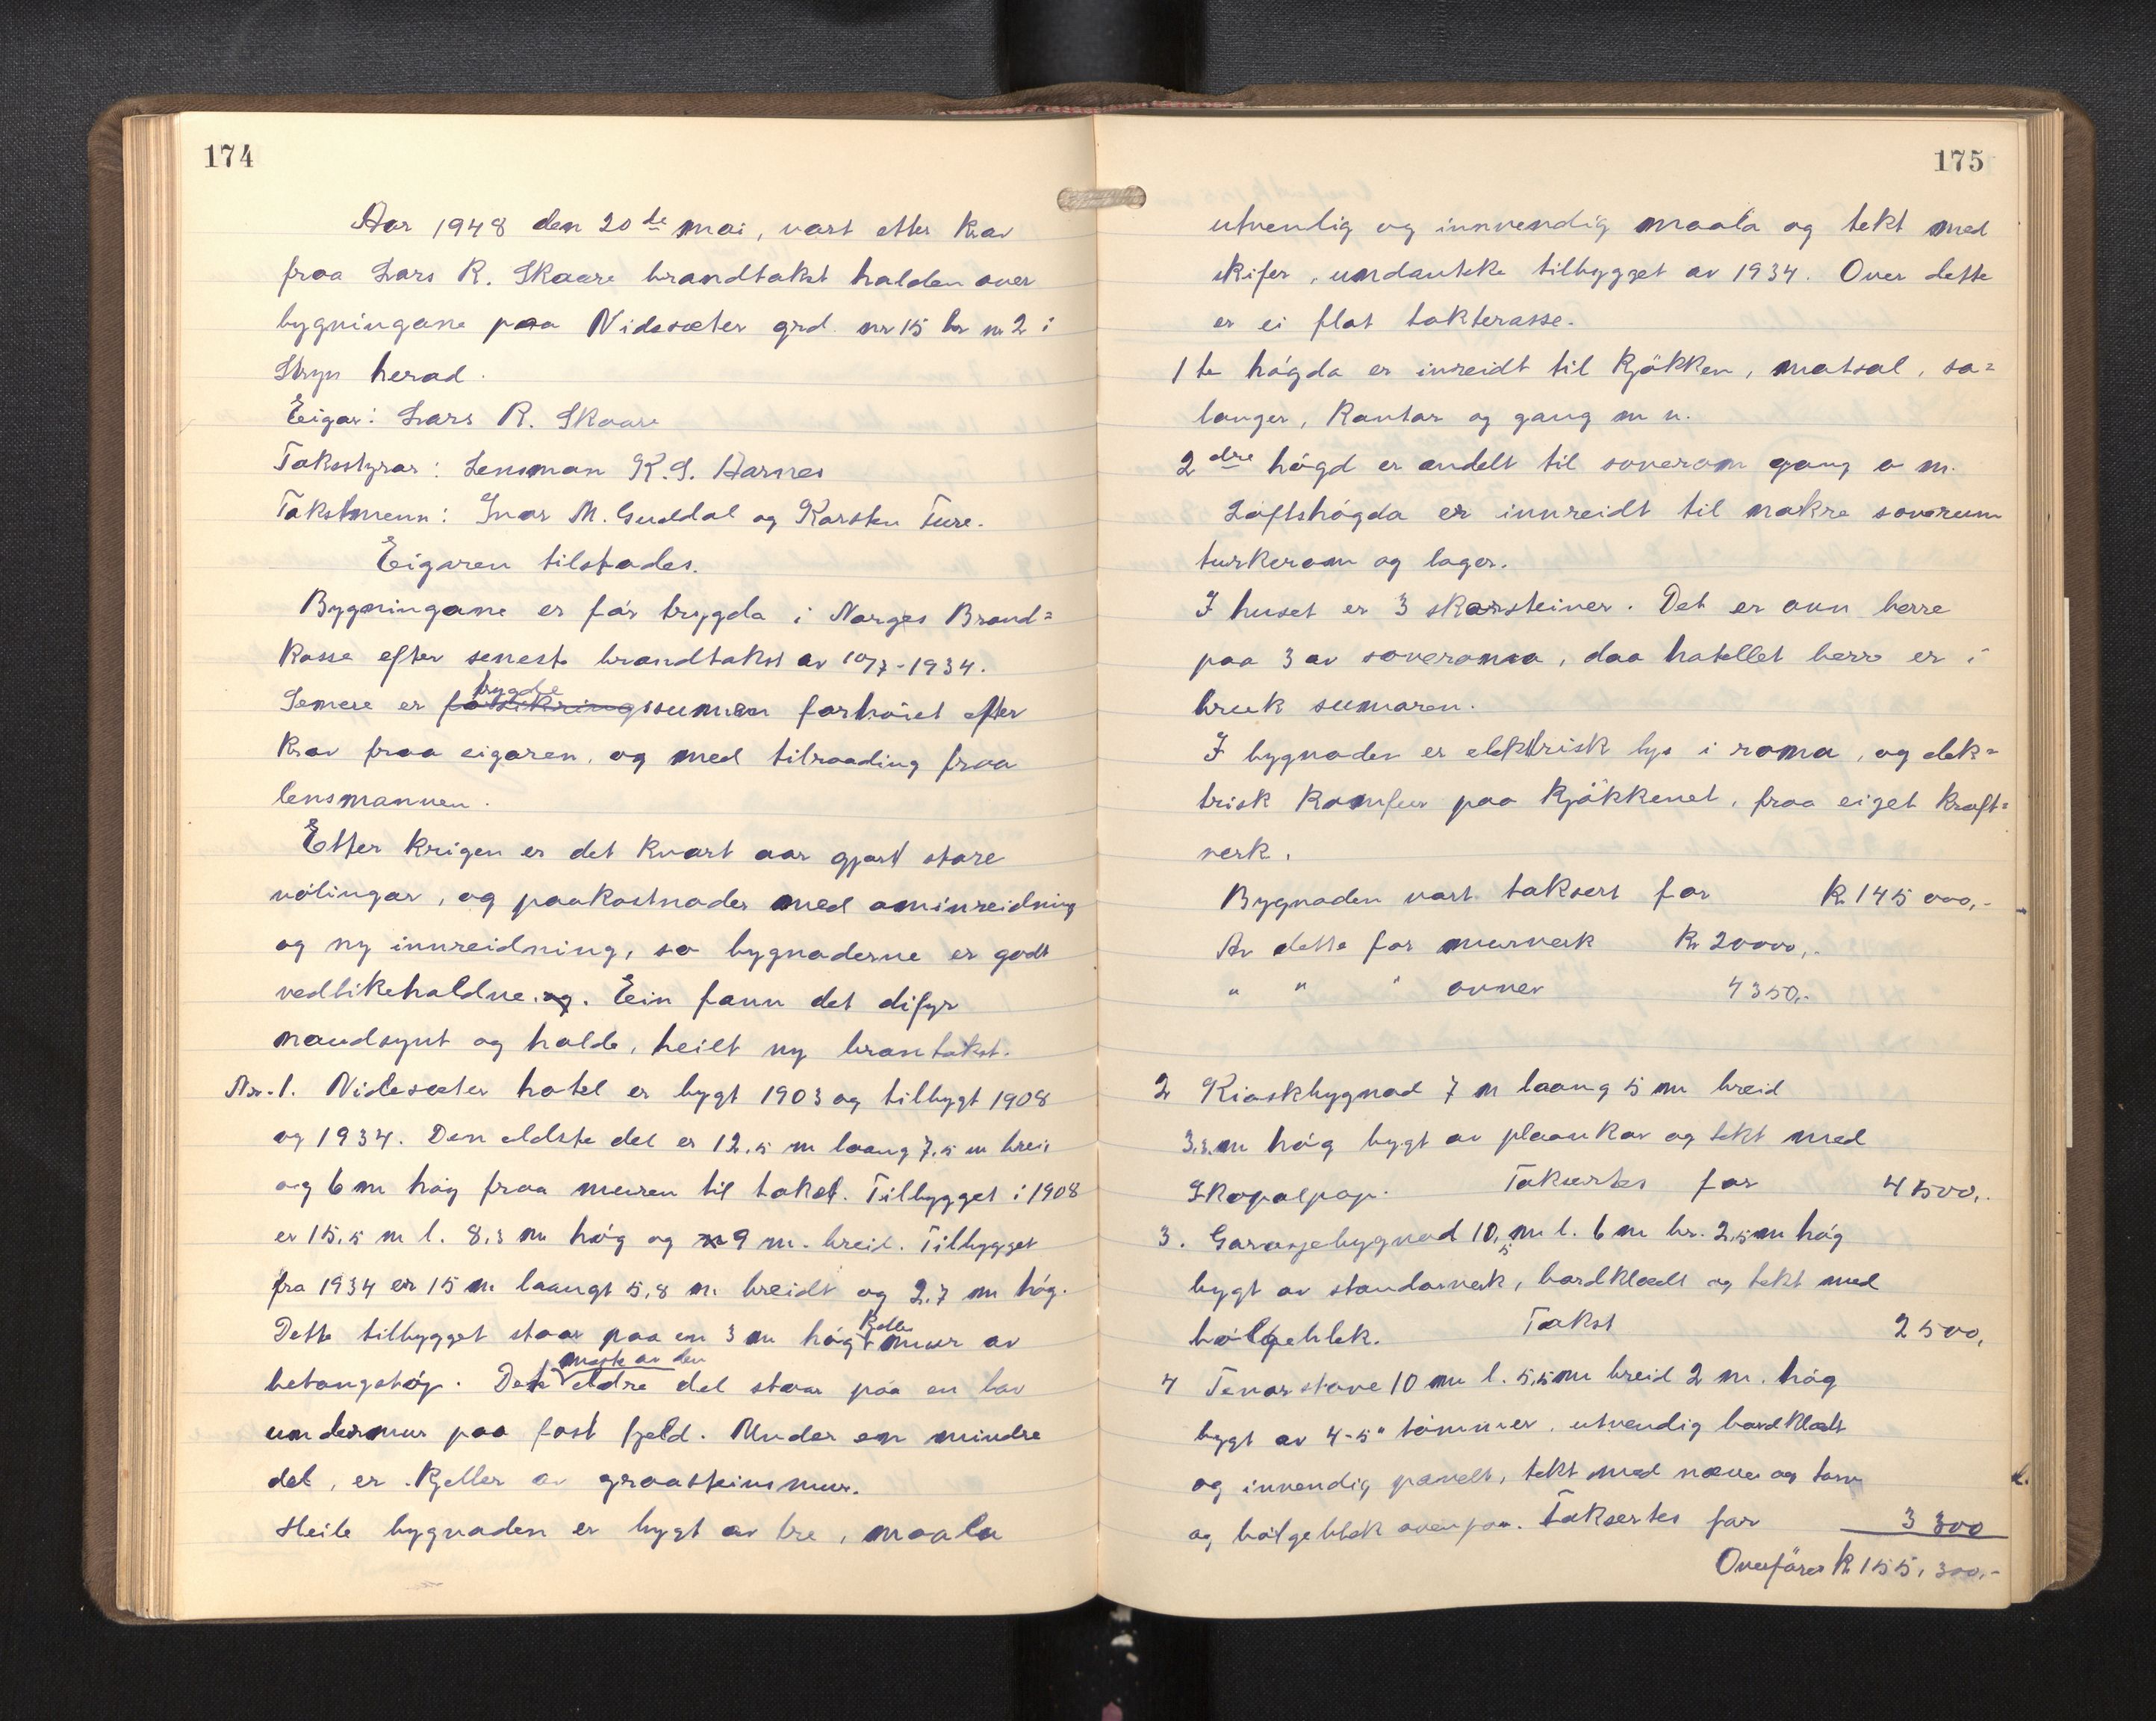 174
Aar 1948 den 20de mai, vart etter krav
fraa Lars R. Skaare brandtakst halden over
bygningane paa Videsæter grd. nr 15 br nr 2 i
Stryn herad.
Eigar: Lars R. Skaare
Takststyrar: Lensman K. S. Aarnes
Takstmenn: Ivar M. Guddal og Karsten Ture.
Eigaren tilstades.
Bygningane er för trygda i Norges Brand=
kasse efter seneste brandtakst av 10/7-1934.
Senere er trygdesummen forhöiet efter
krav fraa eigaren, og med tilraading fraa
lensmannen.
Etter krigen er det kvart aar gjort store
völingar, og paakostnader med ominreidning
og ny innreidning, so bygnaderne er godt
vedlikehaldne. Ein fann det difyr
naudsynt og halde, heilt ny brantakst.
Nr. 1. Videsæter hotel er bygt 1903 og tilbygt 1908
og 1934. Den eldste del er 12.5 m laang 7.5 m brei
og 6 m hög fraa muren til taket. Tilbygget i 1908
er 15,5 m l. 8,3 m hög og 9 m. breid. Tilbygget
fra 1934 er 15 m laangt 5,8 m. breidt og 2.7 m hög.
Dette tilbygget staar paa en 3 m högt kjeller mur av
betongstöp. Det meste av den eldre del staar paa en lav
undermur paa fast fjeld. Under en mindre
del, er kjeller av graasteinsmur.
Heile bygnaden er bygt av tre, maala
175
utvendig og innvendig maala og tekt med
skifer, undantekte tilbygget av 1934. Over dette
er ei flat takterasse.
1te högda er inreidt til kjökken, matsal, sa=
longer, kontor og gang m n.
2dre högd er endelt til soverom gang o m.
Loftshögda er innreidt til nokre soverum
turkerom og lager.
I huset er 3 skorsteiner. Det er ovn berre
paa 3 av soveroma, daa hotellet berre er i
bruk sumaren.
I bygnaden er elektrisk lys i roma, og elek=
trisk komfur paa kjökkenet, fraa eiget kraft=
verk.
Bygnaden vart taksert for Kr 145 000,-
Av dette for murverk Kr 20000,-
" " " ovner 4350,-
2 Kioskbygnad 7 m laang 5 m breid
3,3 m hög bygt av plaankar og tekt med
Skopalpap. Taksertes for 4500,-
3. Garasjebygnad 10,5 m l. 6 m br. 2,5 m hög
bygt av standarverk, bordklædt og tekt med
bölgeblek. Takst 2500,
4 Tenarstove 10 m l. 5,5 m breid 2 m. hög
bygt av 4-5" tömmer, utvendig bordklædt
og innvendig panelt, tekt med never og torv
og bölgeblek ovenpaa. Taksertes for 3 300
Overföres Kr 155,300,-